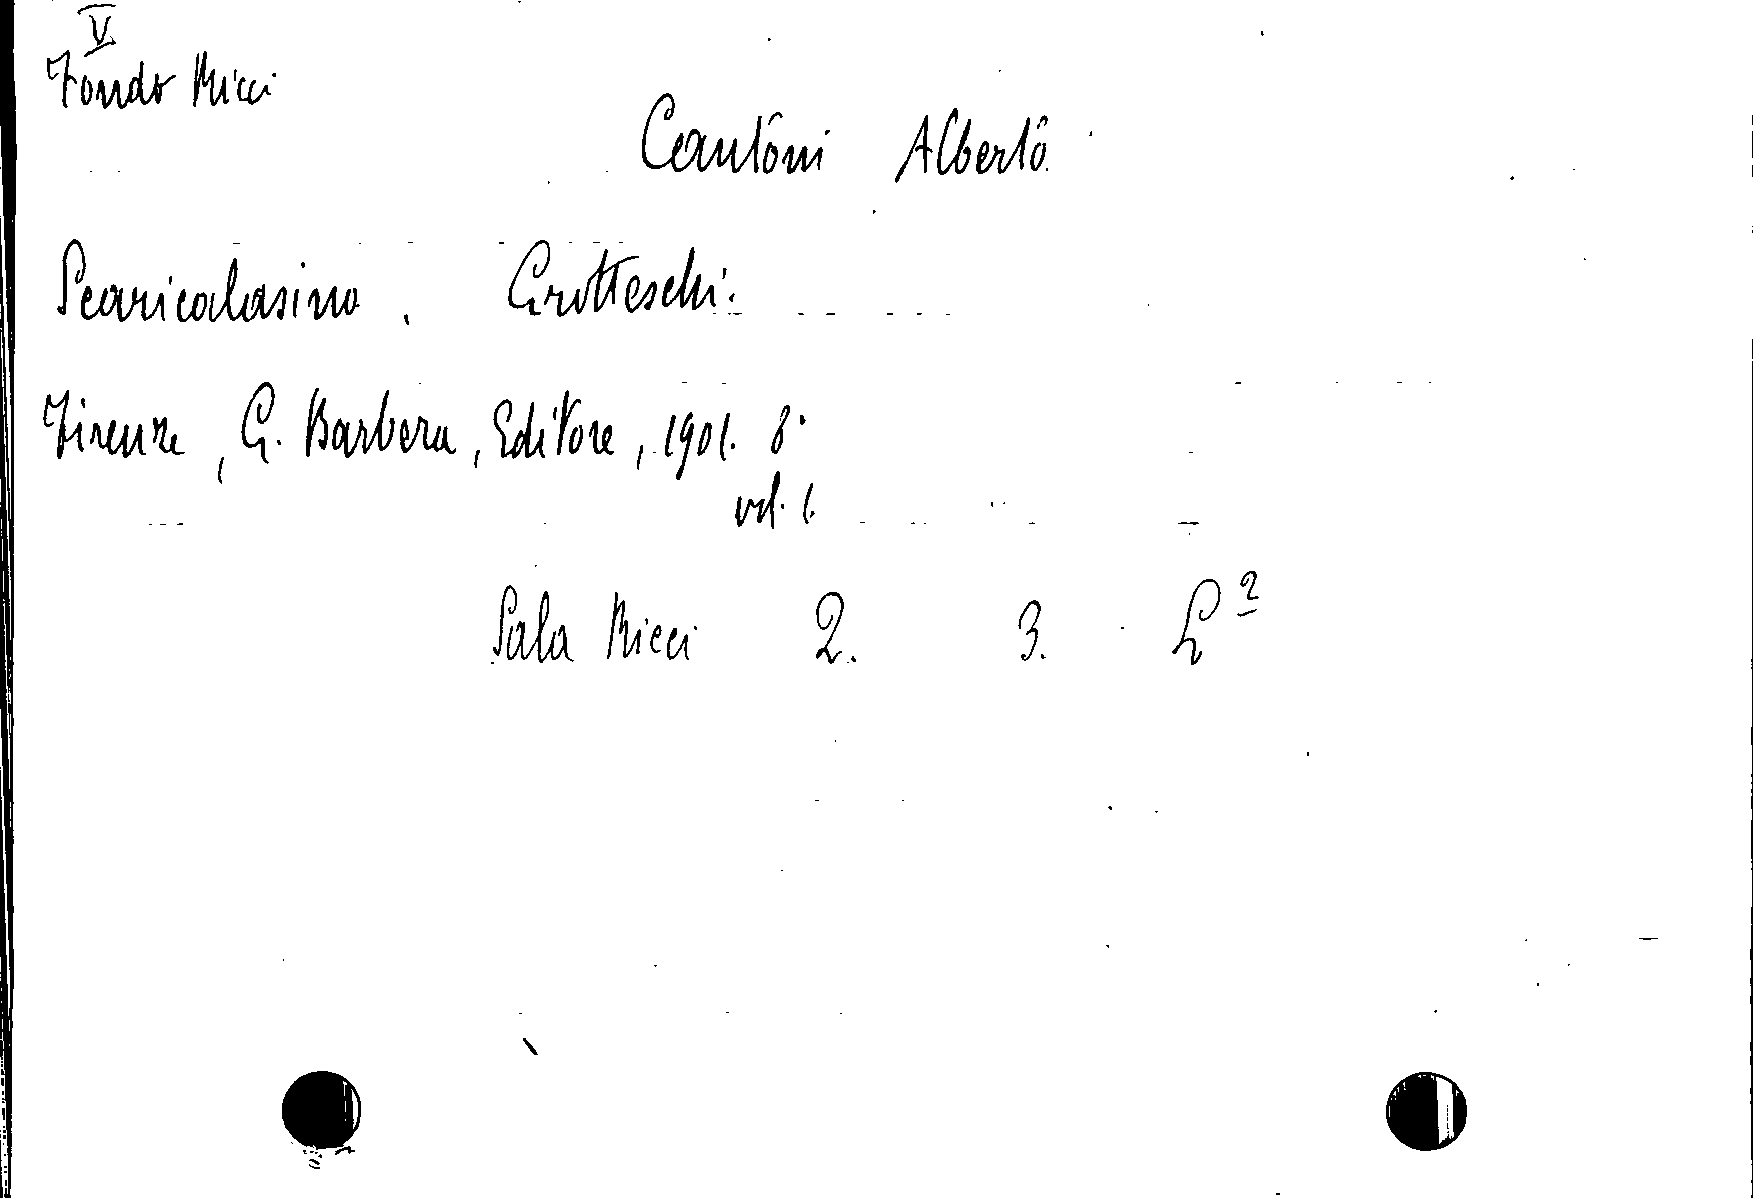 V
Fondo Ricci
Cantoni Alberto
Scaricalasino. Grotteschi.
Firenze, G. Barbera, Editore, 1901. 8°
vol. 1.
Sala Ricci 2. 3. L²